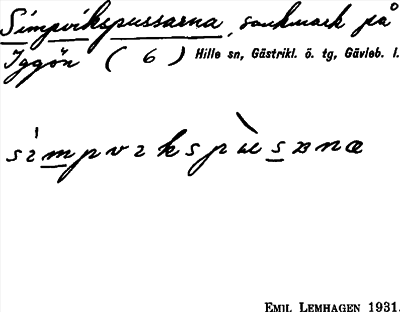 Simpvikspussarna, sankmark på
Iggön ( 6 ) Hille sn, Gästrikl. ö. tg, Gävleb. l.
sìmpvıkspùsana
EMIL LEMHAGEN 1931.